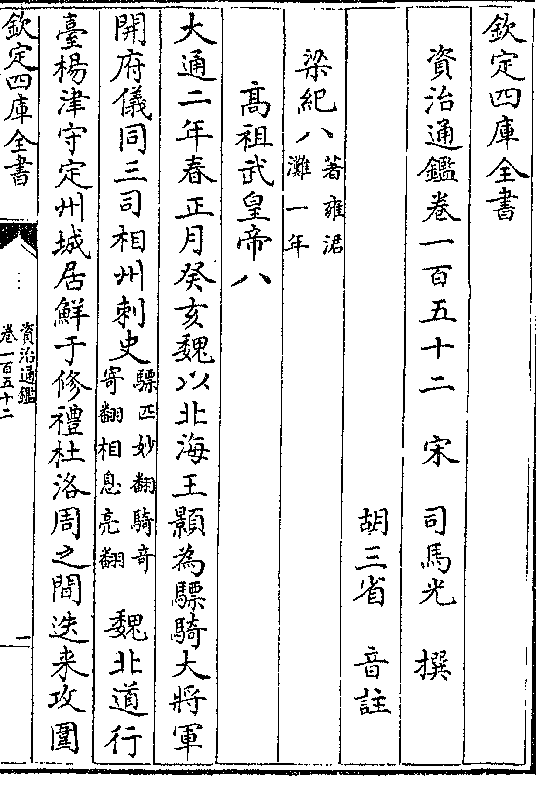 欽定四庫全書
資治通鑑卷一百五十二　宋　司馬光　撰
胡三省　音註
梁紀八著雍涒灘一年
高祖武皇帝八
大通二年春正月癸亥魏以北海王顥為驃騎大將軍
開府儀同三司相州刺史驃匹妙翻騎奇寄翻相息亮翻　魏北道行
臺楊津守定州城居鮮于修禮杜洛周之間迭来攻圍
欽定四庫全書
資治通鑑
卷一百五十二
一